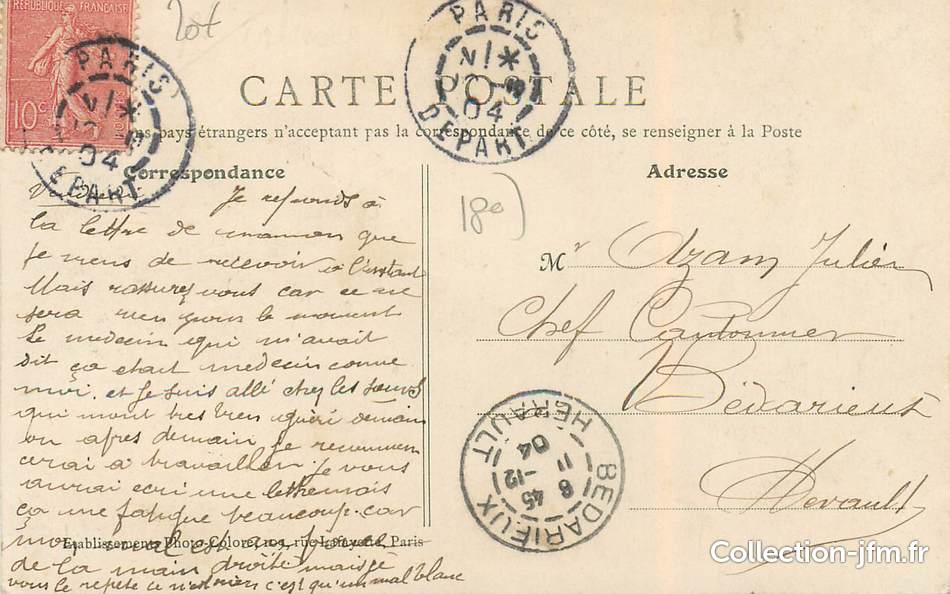 RÉPUBLIQUE FRANÇAISE
10 c
PARIS
04
DEPART
PARIS
04
DEPART
20f
CARTE POSTALE
pays étrangers n'acceptant pas la correspondance de ce côté, se renseigner à la Poste
Correspondance
Adresse
180)
Je reponds à
la lettre de maman que
je viens de recevoir à l'instant
Mais rassurez vous car ce ne
sera rien pour le moment
Le medecin qui m'avait
dit ça etait medecin comme
moi. et je suis allé chez les sœurs
qui m'ont tres bien guéri demain
ou apres demain je recommen
cerai à travailler je vous
aurai ecri une lettre mais
ça me fatigue beaucoup. car
mon mal est au
de la main droite mais je
vous le repete ce n'est rien c'est qu'un mal blanc
Mr Azam Julien
Chef Cantonnier
Bédarieux
Herault
BEDARIEUX
HERAULT
6 45
11 -12
04
Etablissements Photo-Color, 109, rue Lafayette, Paris
Collection-jfm.fr